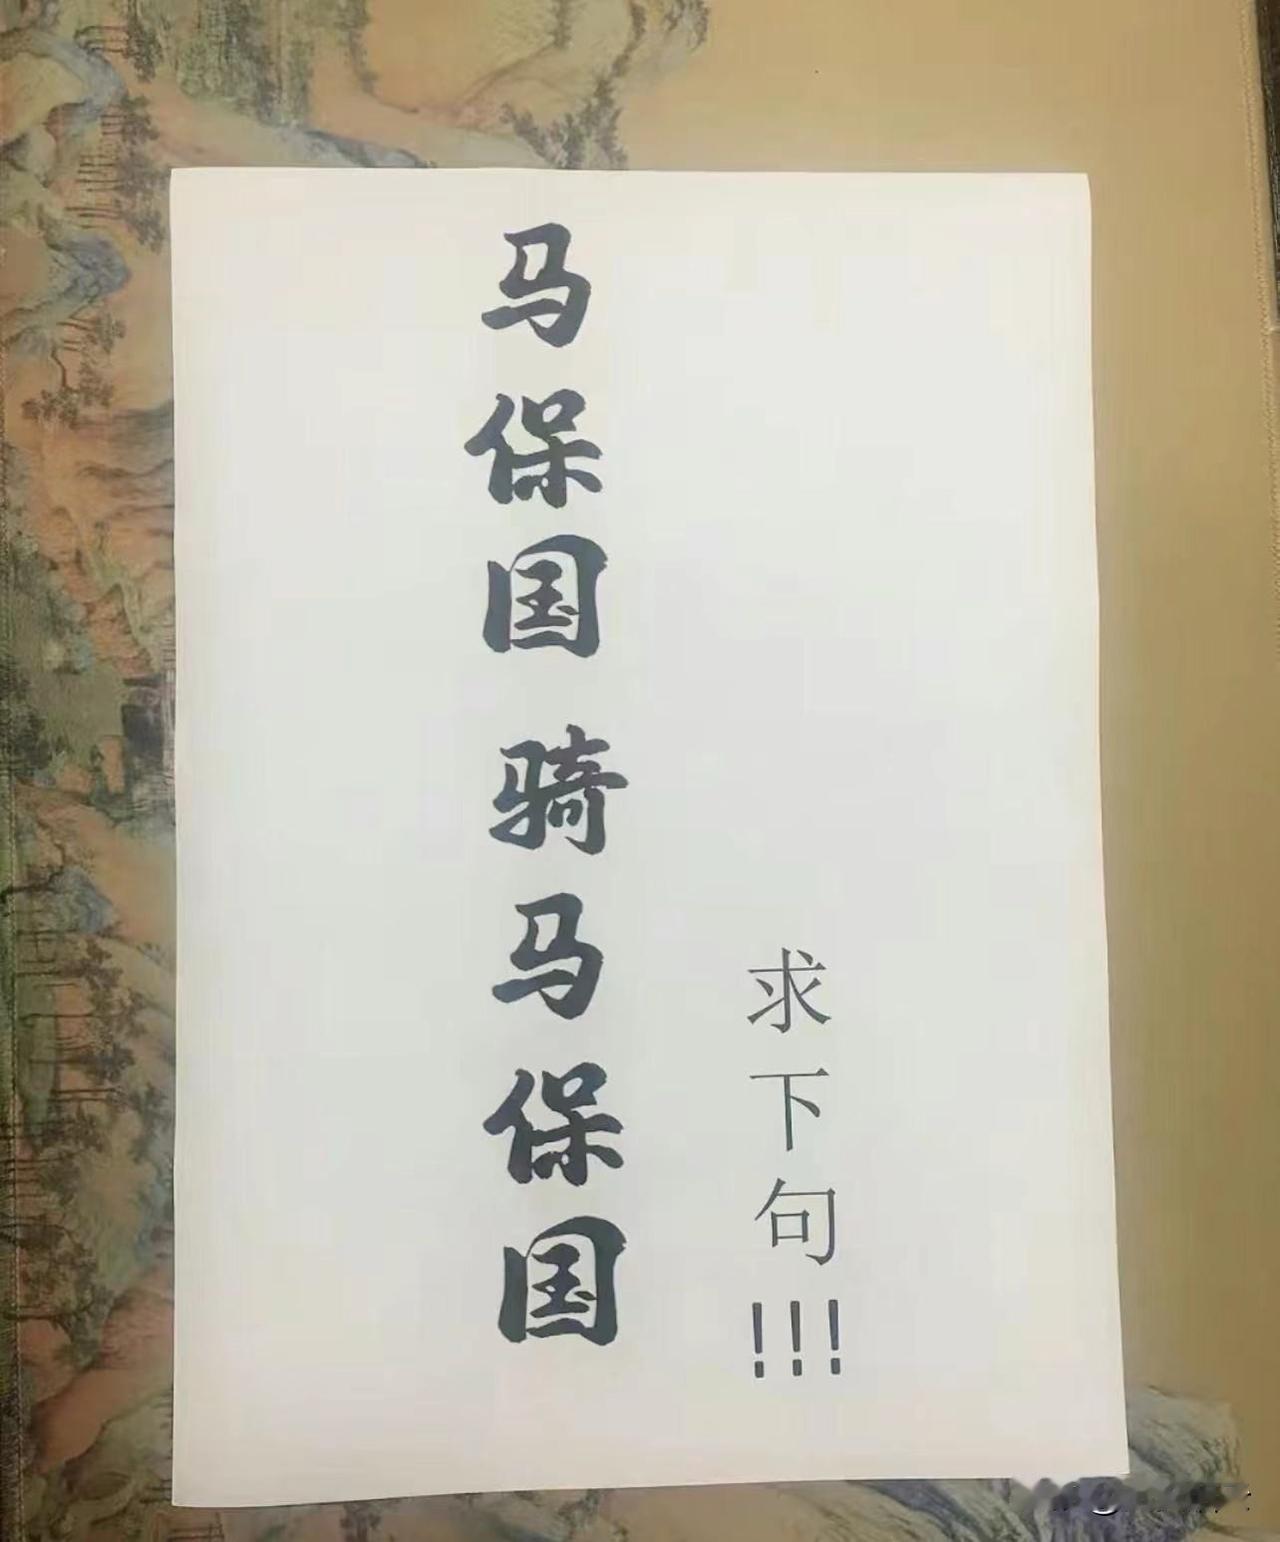 马保国骑马保国
求下句!!!